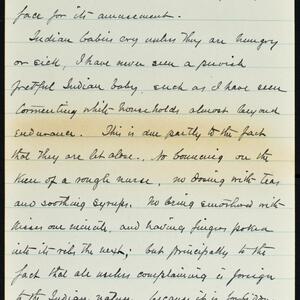 face for its amusement.
Indian babies cry unless they are hungry
or sick, I have never seen a peevish
fretful Indian baby, such as I have seen
tormenting white households almost beyond
endurance. This is due partly to the fact
that they are let alone. No bouncing on the
knee of a rough nurse, no dosing with teas
and soothing syrups. No being smothered with
kisses one minute, and having fingers poked
into its ribs the next; but principally to the
fact that all useless complaining is foreign
to the Indian nature, because it is